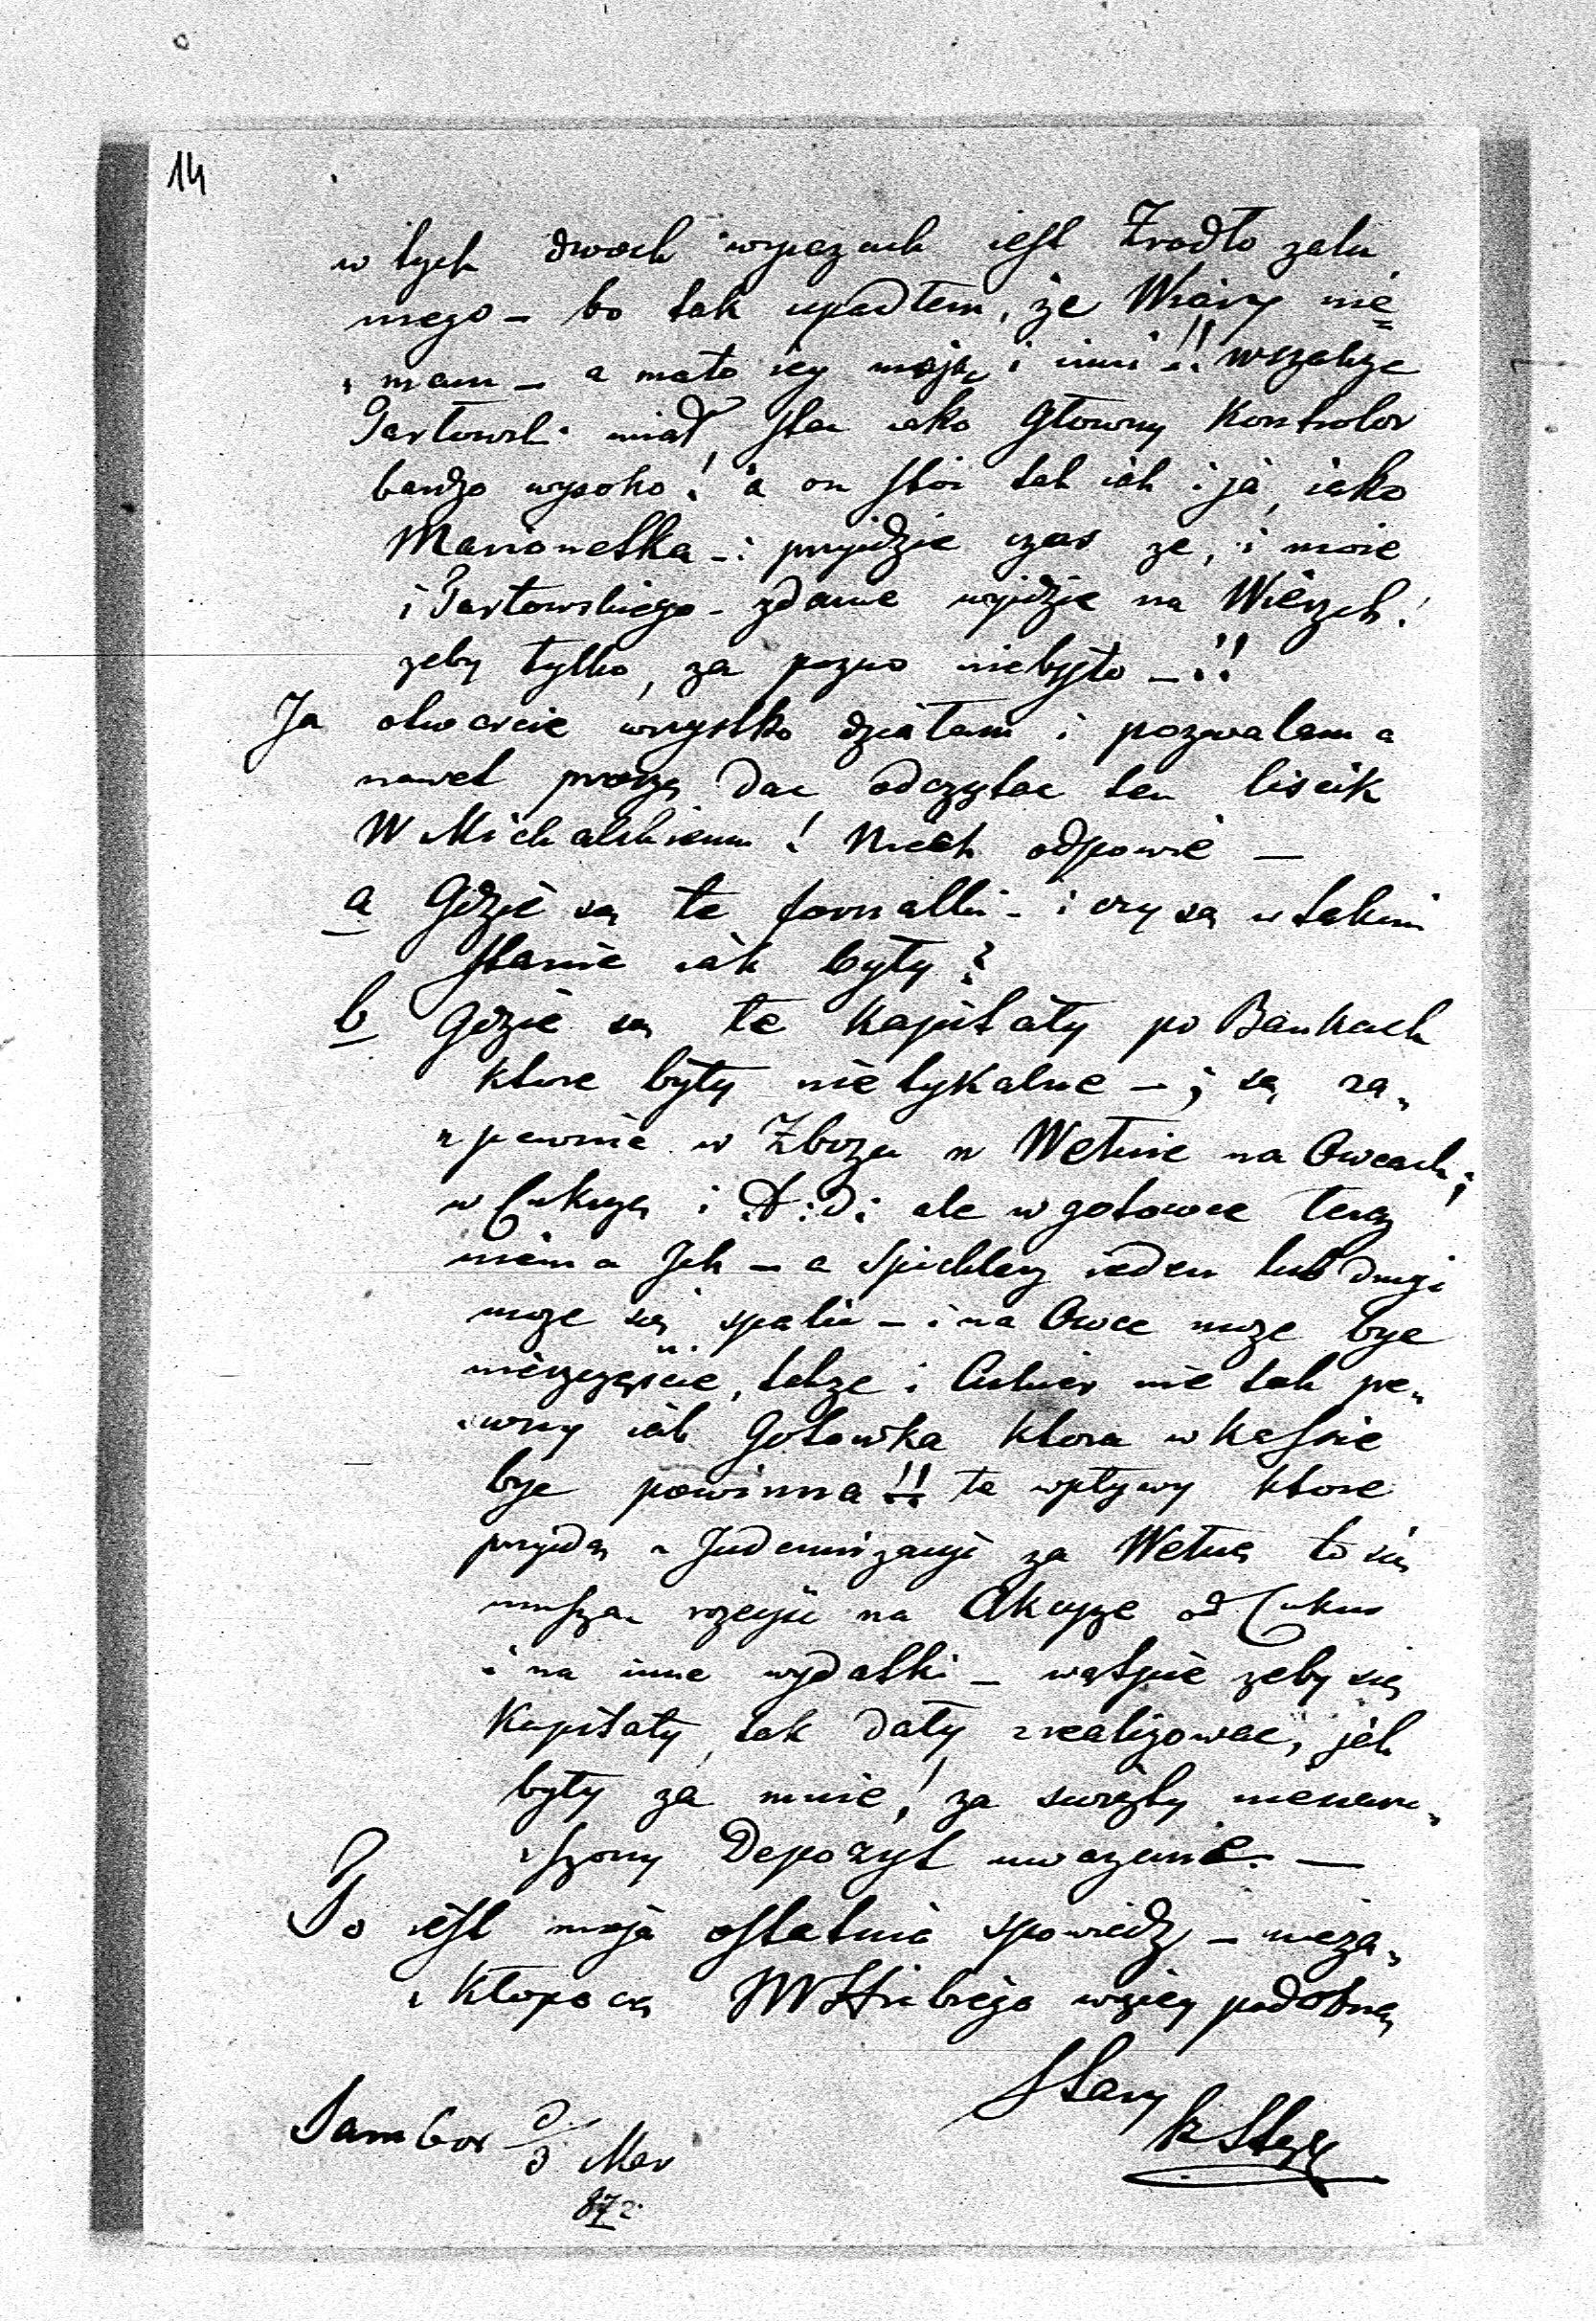 14
w tych dwoch wyrazach iest Zrodło zalu
mego – bo tak upadłem, że Wiary nie=
„mam – a mało iey mają i inni!! wszakze
Partowski miał stac iako Głowny Kontrolor
bardzo wysoko! a on stoi tak iak i ja, iako
Marionetka – i przyidzie czas ze, i moie
i Partowskiego – zdanie wyidzie na Wierzch!
zeby tylko, za pozno niebyło –!!
Ja otwarcie wszystko działam i pozwalam a
nawet proszę dac odczytac ten liscik
W Michalskiemu! Niech odpowie –
a Gdzie są te fornalki – i czy są w takim
stanie iak były?
b Gdzie są te Kapitały po Bankach
ktore były nietykalne –; są za„
„pewnie w Zbozu w Wełnie na Owcach;
w Cukrze i t:d: ale w gotowce teraz
niema Ich – a Spichlerz ieden lub drugi
moze się spalic – i na Owce moze byc
nieszczęscie, takze i Cukier nie tak pe„
„wny iak Gotowka ktora w Kassie
byc powinna!! te wpływy ktore
przyidą z Indemnizacyi za Wełnę to się
muszą rozejsc na Akcyze od Cukru
i na inne wydatki – wątpie zeby się
Kapitały, tak dały zrealizowac, jak
były za mnie! za swięty nienaru„
„szony Depozyt uwazanie. —
To iest moja ostatnia spowiedz – nieza„
„kłopocą JW Hrabiego więcy podobną
Stary
Sambor 3/3 Mar
872